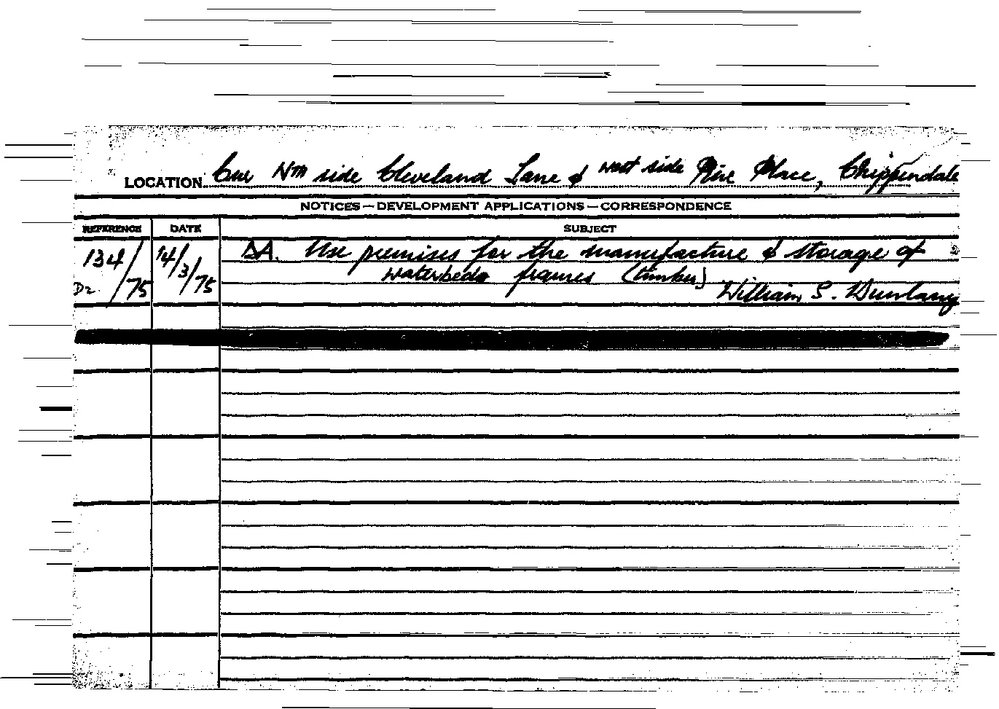 LOCATION Cnr Nth side Cleveland Lane & west side Pine Place, Chippendale
NOTICES—DEVELOPMENT APPLICATIONS—CORRESPONDENCE
REFERENCE DATE SUBJECT
134/75 14/3/75 DA. Use premises for the manufacture & storage of
Dr. waterbeds frames (timber)
William S.